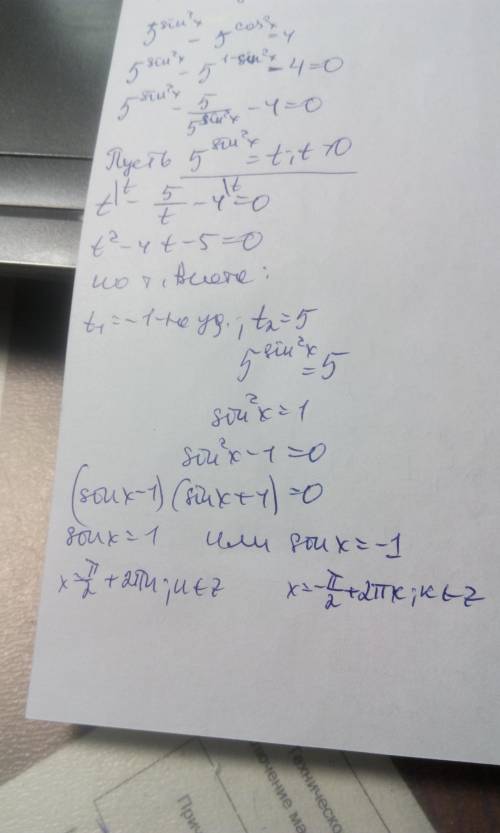 5^{sin²x} - 5^{cos²x} = 4
5^{sin²x} - 5^{1-sin²x} - 4 = 0
5^{sin²x} - 5/5^{sin²x} - 4 = 0
Пусть 5^{sin²x} = t; t > 0
t|t - 5/t - 4|t = 0
t² - 4t - 5 = 0
по т. Виета:
t₁ = -1 - не уд.; t₂ = 5
5^{sin²x} = 5
sin²x = 1
sin²x - 1 = 0
(sinx - 1)(sinx + 1) = 0
sinx = 1 или sinx = -1
x = π/2 + 2πк; к ∈ Z x = -π/2 + 2πк; к ∈ Z
Техническо
ключение ма
При